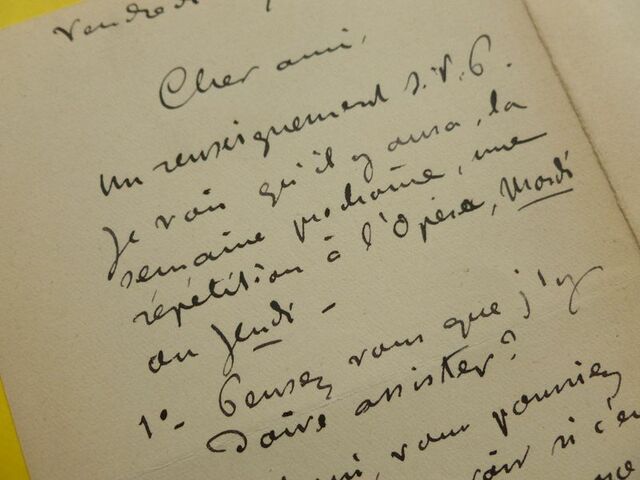 Vendredi
Cher ami,
Un renseignement S.V.P.
Je vois qu'il y aura, la
semaine prochaine, une
répétition à l'Opéra, Mardi
ou Jeudi -
1º- Pensez vous que j'y
doive assister?
vous pourriez
si c'en